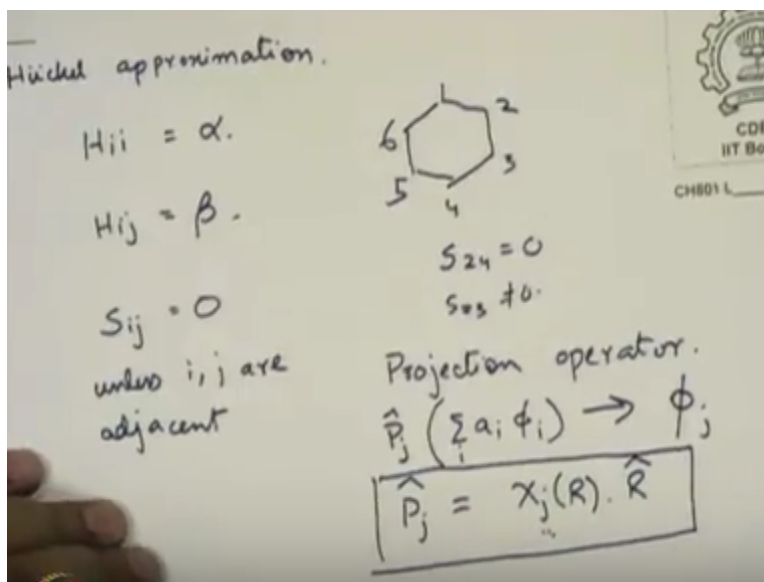 Hückel approximation.
Hii = α.
Hij = β.
Sij = 0
unless i, j are
adjacent
1
2
3
4
5
6
S24 = 0
S23 ≠ 0.
Projection operator.
P̂j (Σi ai ϕi) → ϕj
P̂j = χj(R). R̂
CDE
IIT Bo
CH601 L